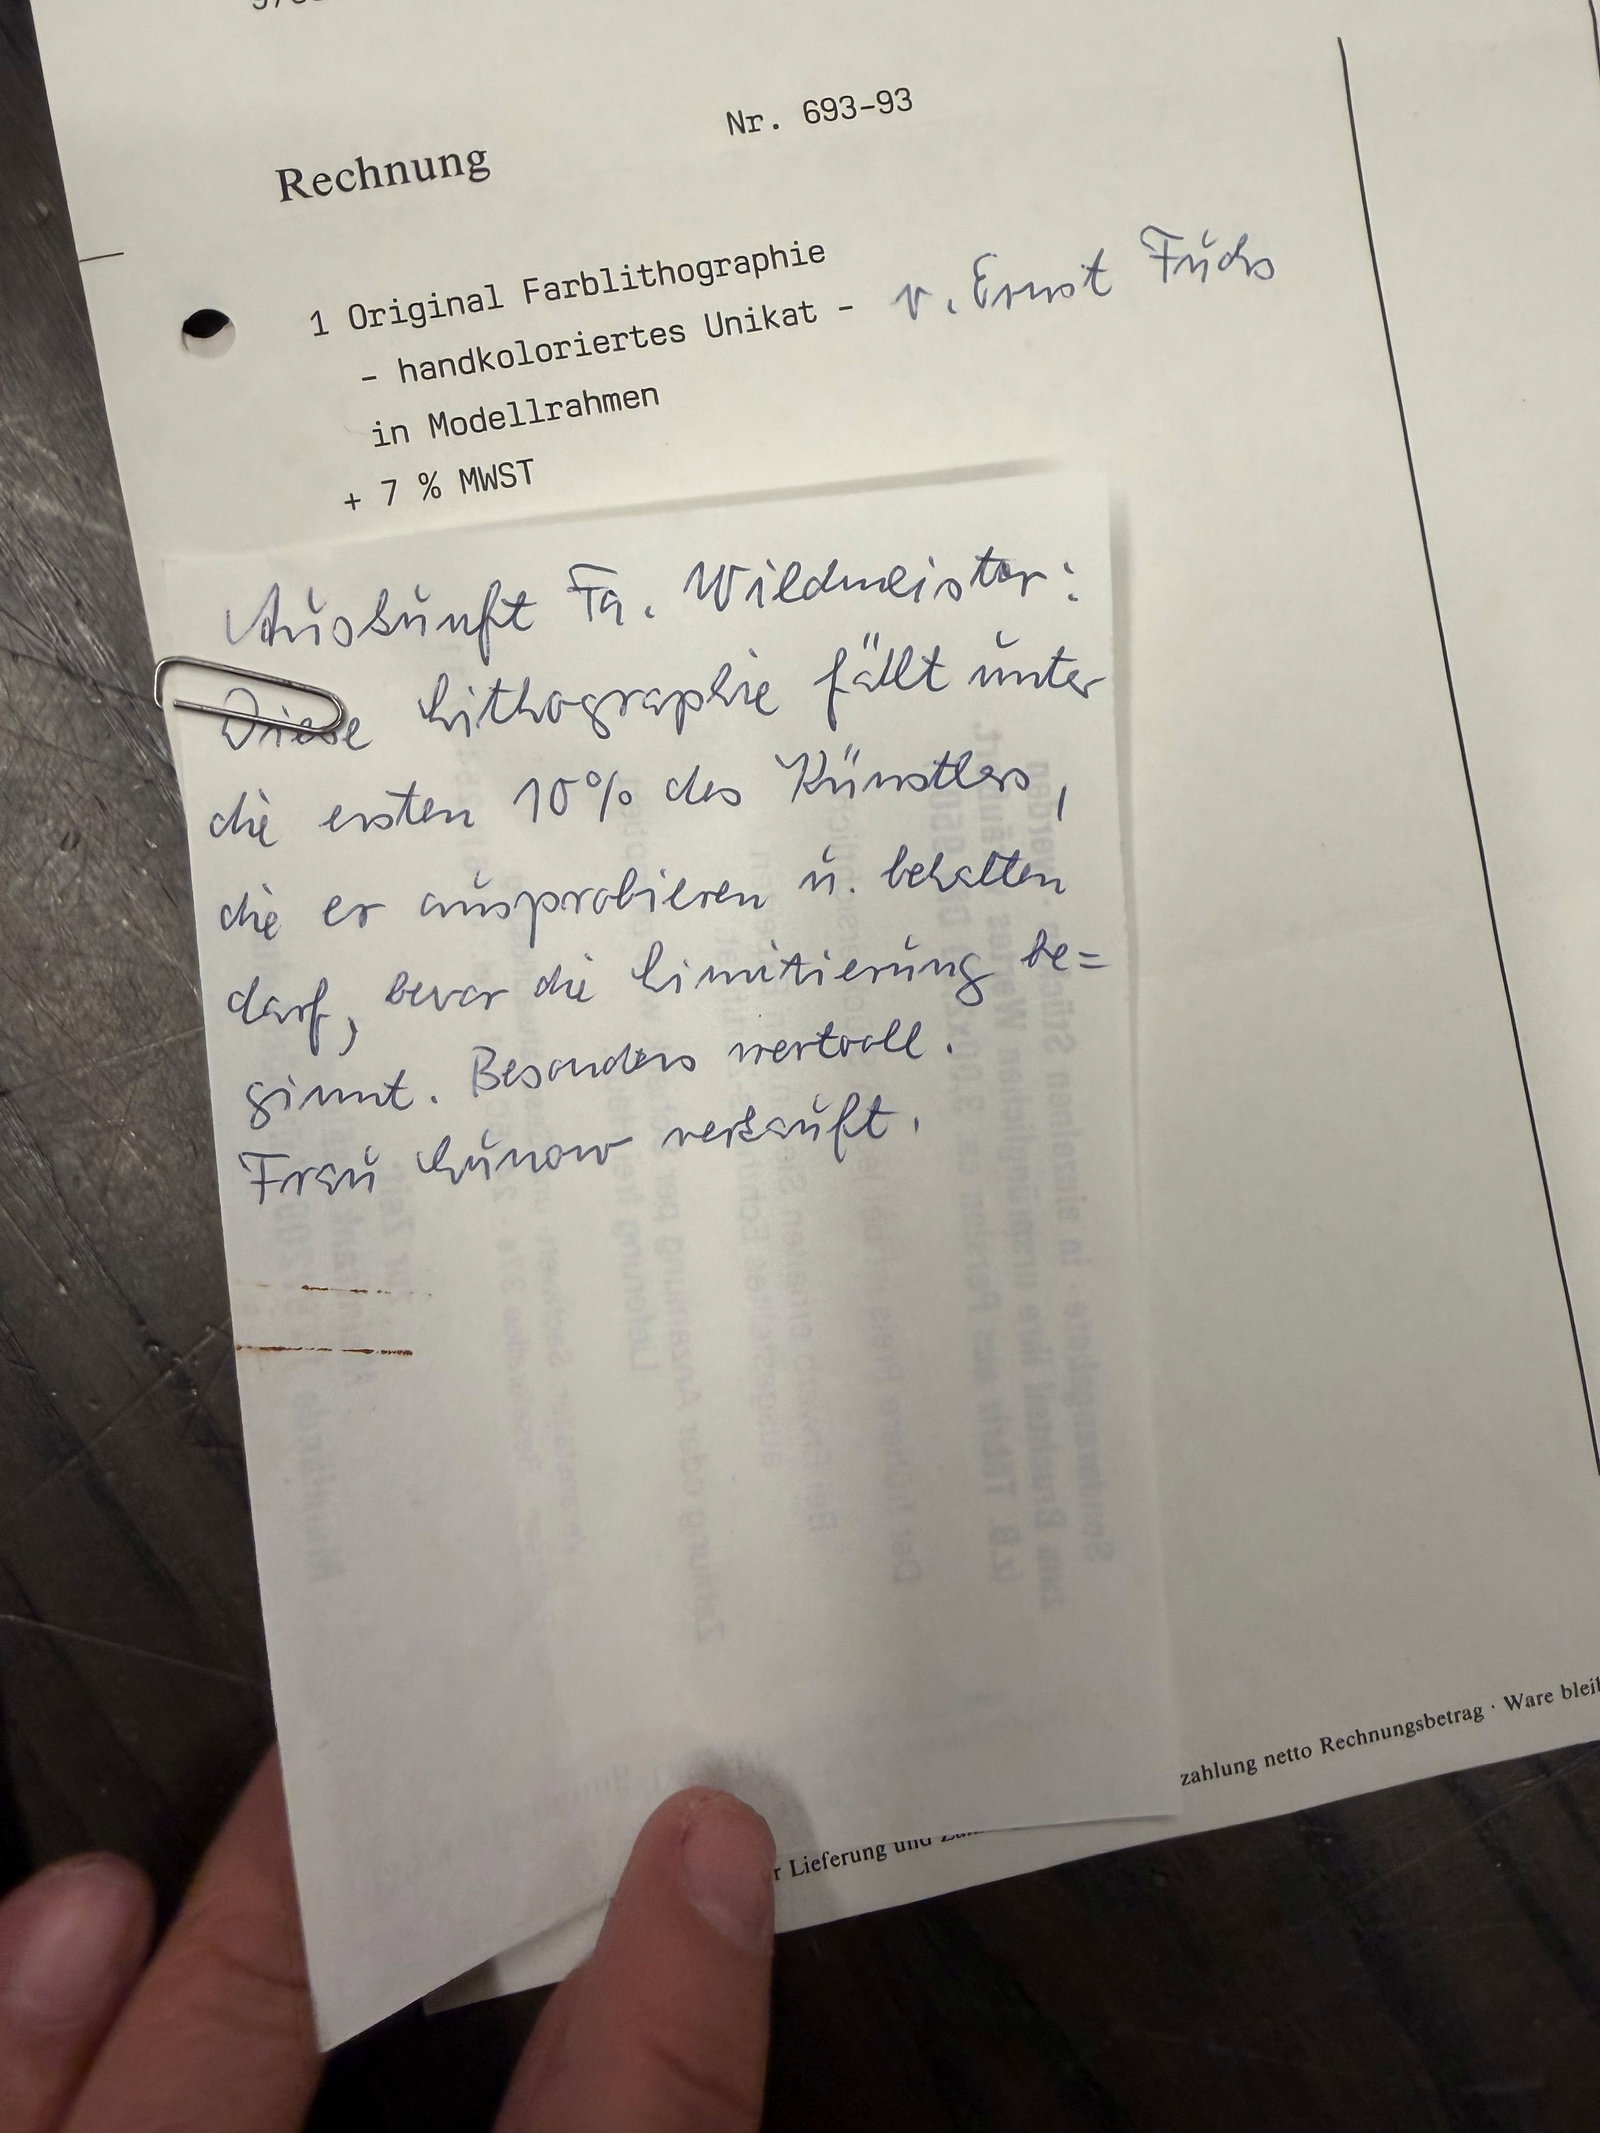 Nr. 693-93
Rechnung
1 Original Farblithographie
- handkoloriertes Unikat - v. Ernst Fuchs
in Modellrahmen
+ 7 % MWST
Auskunft Fa. Wildmeister:
Diese Lithographie fällt unter
die ersten 10% des Künstlers,
die er ausprobieren u. behalten
darf, bevor die Limitierung be=
ginnt. Besonders wertvoll.
Frau Lunow verkauft.
zahlung netto Rechnungsbetrag · Ware bleib
r Lieferung und